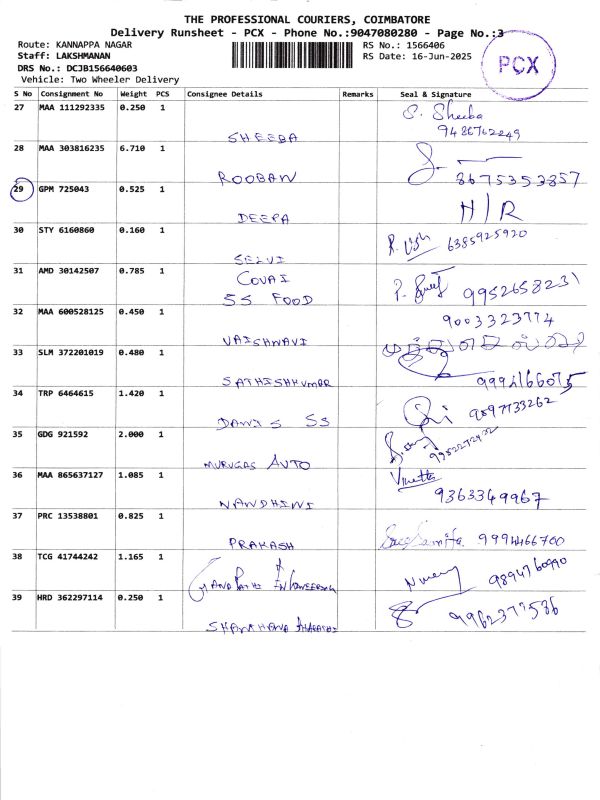 THE PROFESSIONAL COURIERS, COIMBATORE
Delivery Runsheet - PCX - Phone No.:9047080280 - Page No.:3
Route: KANNAPPA NAGAR
RS No.: 1566406
Staff: LAKSHMANAN
RS Date: 16-Jun-2025
PCX
DRS No.: DCJB156640603
Vehicle: Two Wheeler Delivery
S No Consignment No Weight PCS Consignee Details Remarks Seal & Signature
27 MAA 111292335 0.250 1 S. Sheeba
SHEEBA 9486762249
28 MAA 303816235 6.710 1
ROOBAN 8675353857
29 GPM 725043 0.525 1 H/R
DEEPA
30 STY 6160860 0.160 1 6385925920
SELVI
31 AMD 30142507 0.785 1 COVAI
SS FOOD 9952658231
32 MAA 600528125 0.450 1 9003323774
VAISHNAVI
33 SLM 372201019 0.480 1
SATHISHKUMAR 9994166075
34 TRP 6464615 1.420 1 9897733262
SS
35 GDG 921592 2.000 1
MURUGAS AUTO
36 MAA 865637127 1.085 1
NANDHINI 9363349967
37 PRC 13538801 0.825 1
PRAKASH 9994466700
38 TCG 41744242 1.165 1
9894760990
39 HRD 362297114 0.250 1
9962377586